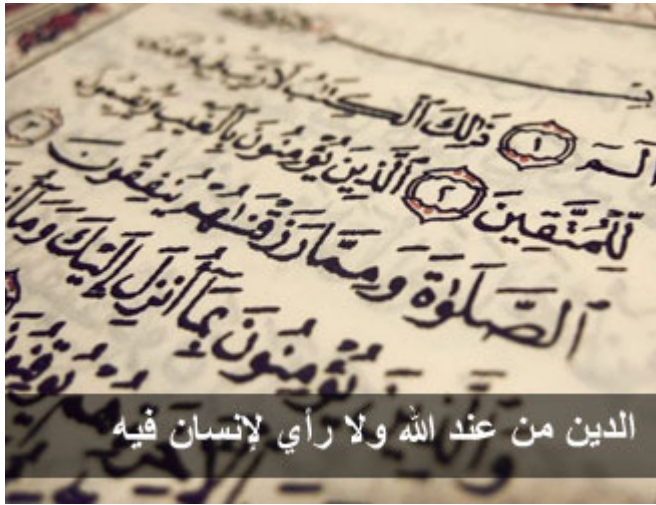 الٓمٓ ١ ذَٰلِكَ ٱلْكِتَٰبُ لَا رَيْبَ فِيهِ هُدًى
لِّلْمُتَّقِينَ ٢ ٱلَّذِينَ يُؤْمِنُونَ بِٱلْغَيْبِ وَيُقِيمُونَ
ٱلصَّلَوٰةَ وَمِمَّا رَزَقْنَٰهُمْ يُنفِقُونَ ٣
وَٱلَّذِينَ يُؤْمِنُونَ بِمَآ أُنزِلَ إِلَيْكَ وَمَآ
هُمْ
الدين من عند الله ولا رأي لإنسان فيه